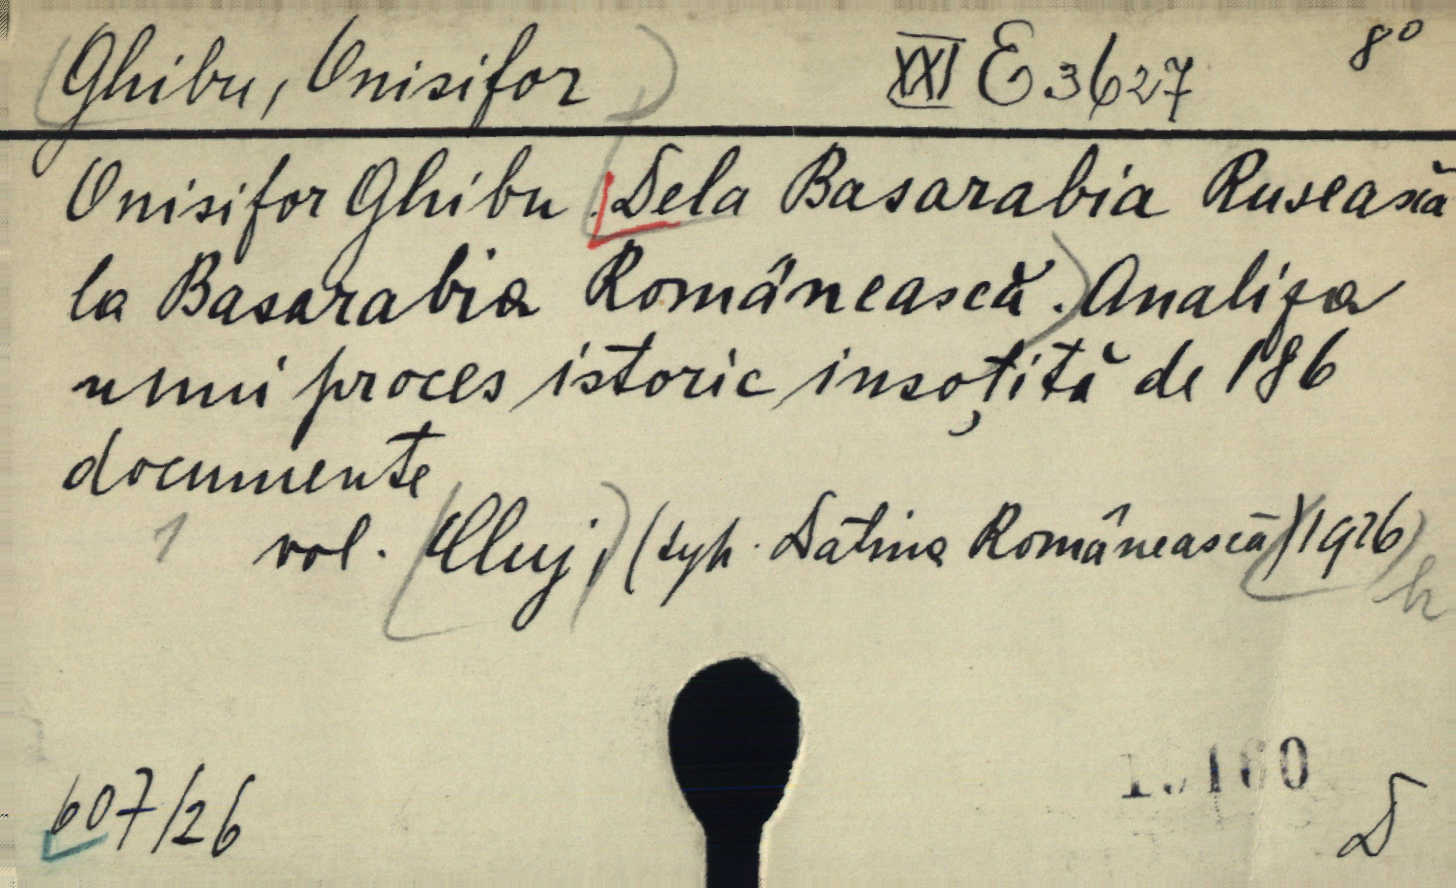 Ghibu, Onisifor XXI E 3627 8°
Onisifor Ghibu. Dela Basarabia Rusească
la Basarabia Românească. Analiza
unui proces istoric insoțită de 186
documente
1 vol. Cluj, (typ. Datina Românească) 1926
h
607/26
D